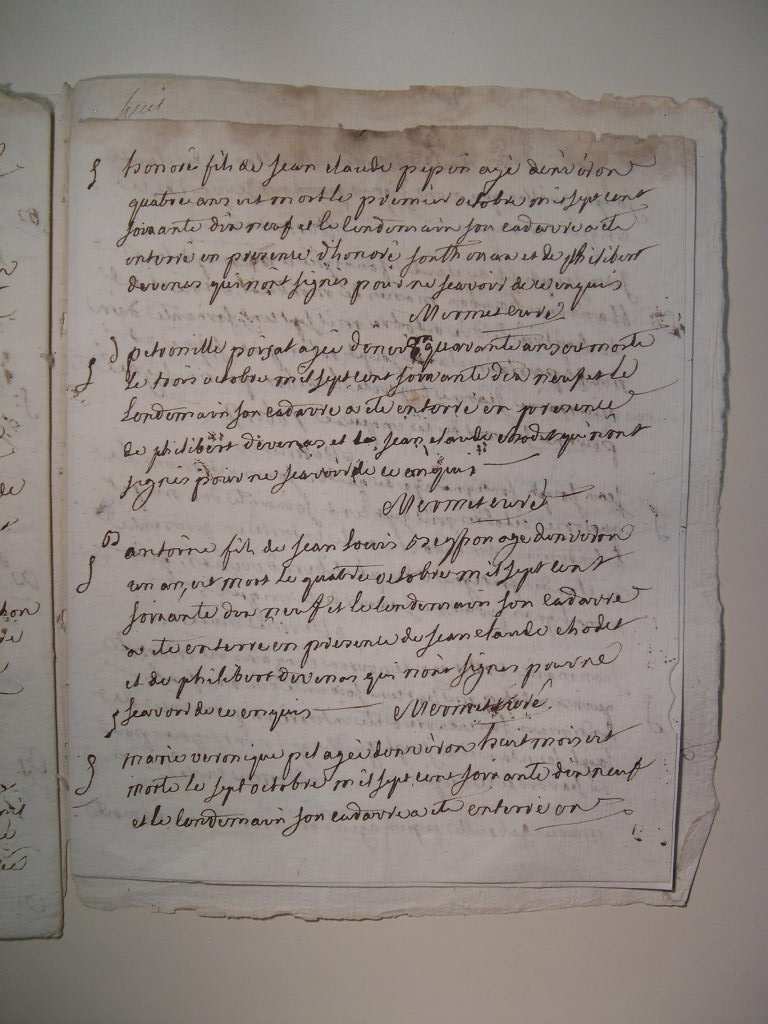 huit
honoré fils de jean claude pepin agé denviron
quatre ans est mort le premier octobre mil sept cent
soixante dix neuf et le lendemain son cadavre a ete
enterré en presence d'honoré sonthonax et de philibert
devenas qui n'ont signés pour ne scavoir de ce enquis
Mermet curé
petronille poisat agée d'environ quarante ans est morte
le trois octobre mil sept cent soixante dix neuf et le
lendemain son cadavre a ete enterré en presence
de philibert devenas et de jean claude chodet qui n'ont
signés pour ne scavoir de ce enquis
Mermet curé
antoine fils de jean louis agé denviron
un an, est mort le quatre octobre mil sept cent
soixante dix neuf et le lendemain son cadavre
a ete enterré en presence de jean claude chodet
et de philibert devenas qui n'ont signés pour ne
scavoir de ce enquis Mermet curé.
marie veronique pel agée denviron huit mois est
morte le sept octobre mil sept cent soixante dix neuf
et le lendemain son cadavre a ete enterré en